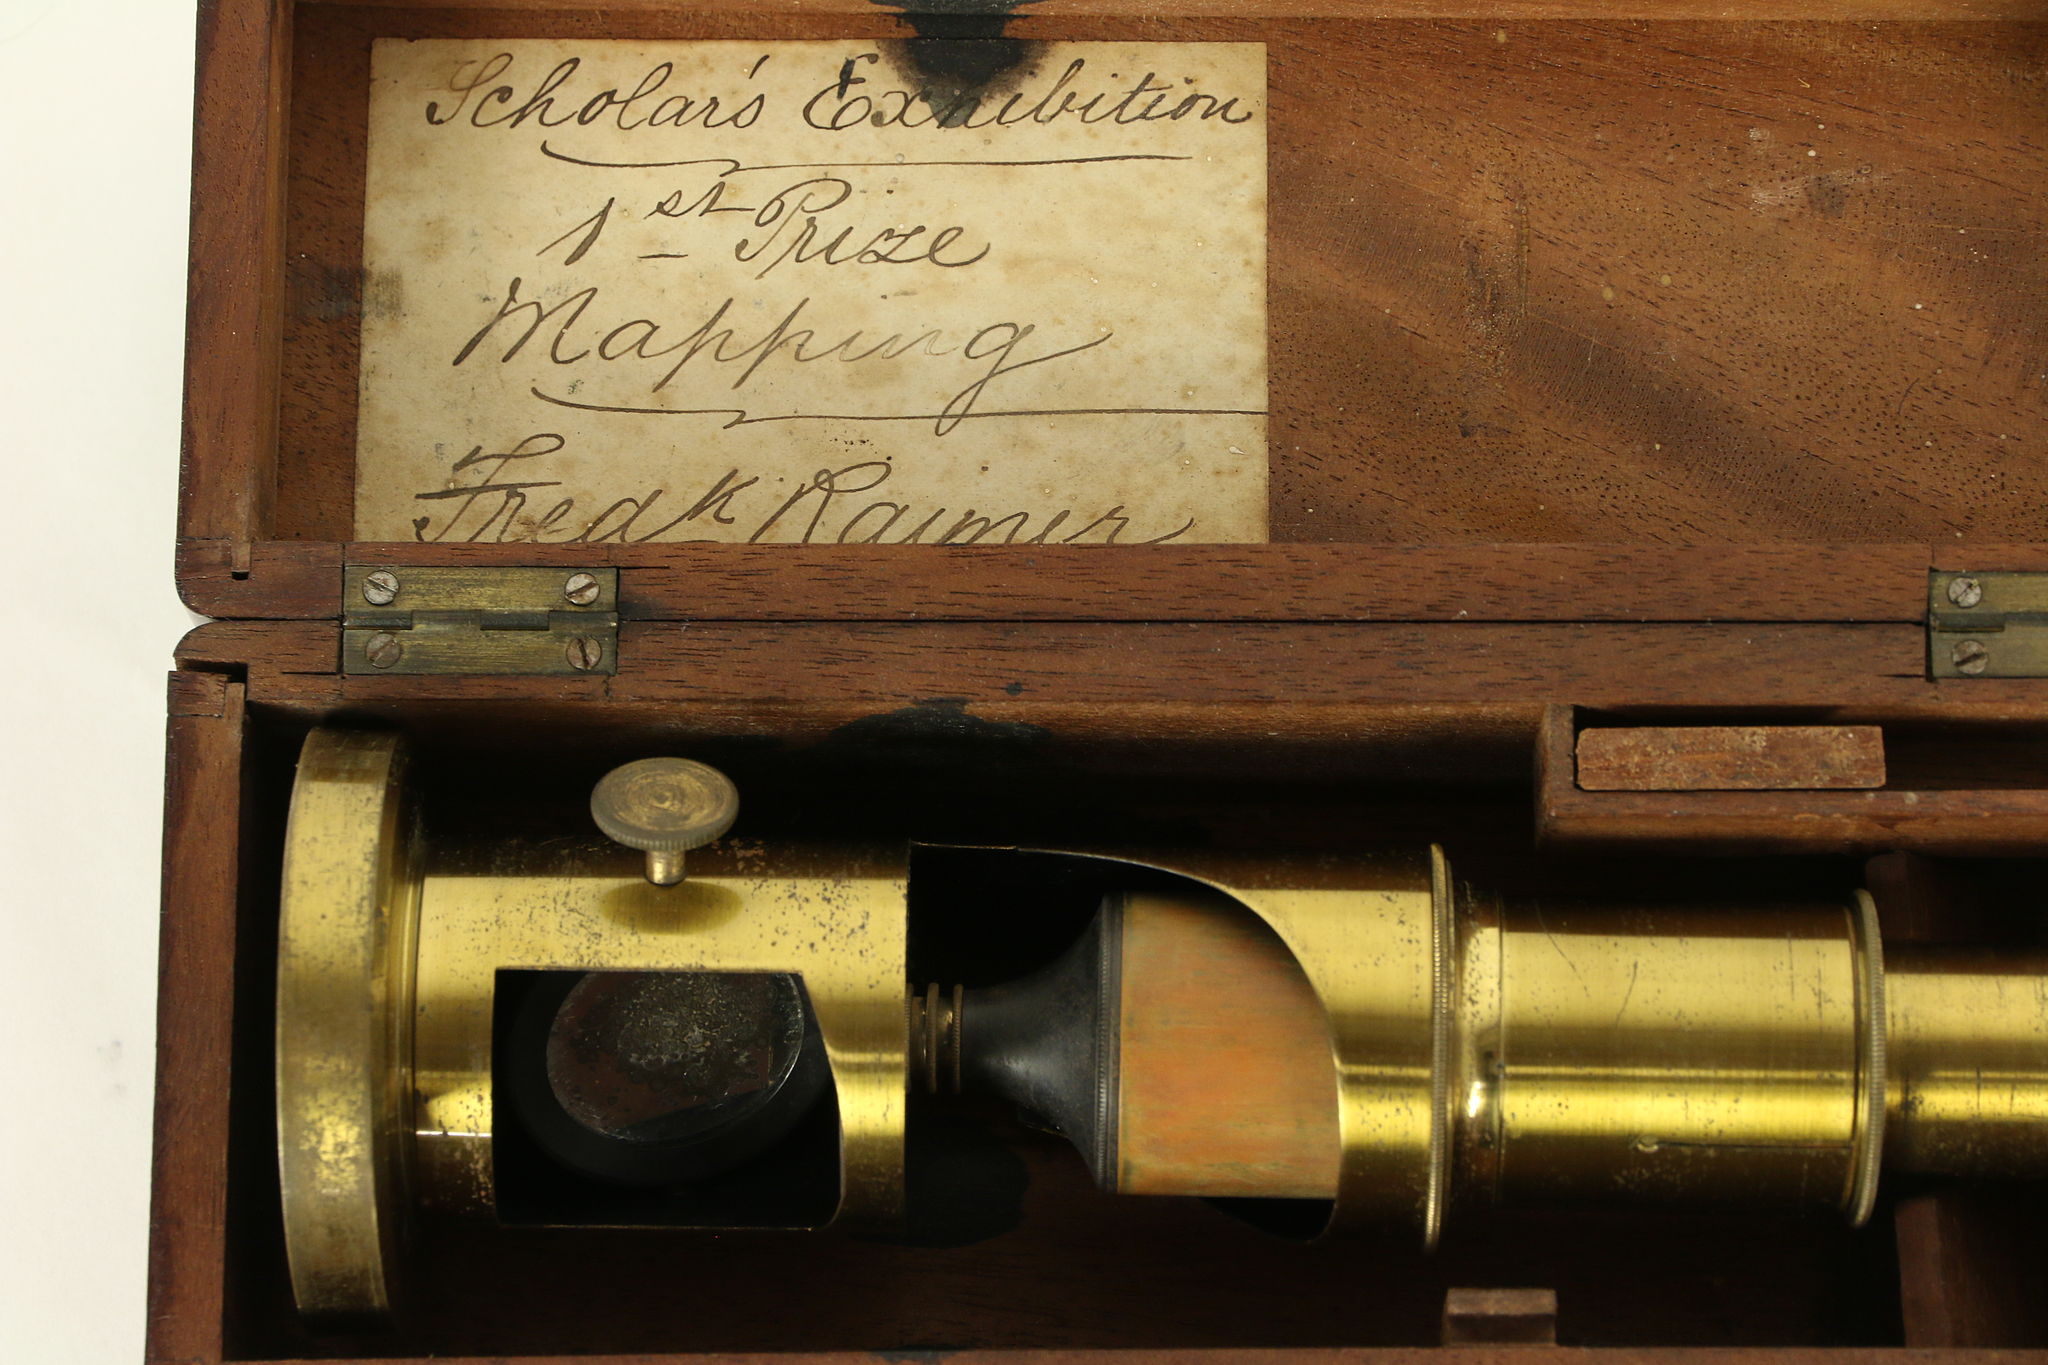 Scholar's Exhibition
1st Prize
Mapping
Fredk Raimer